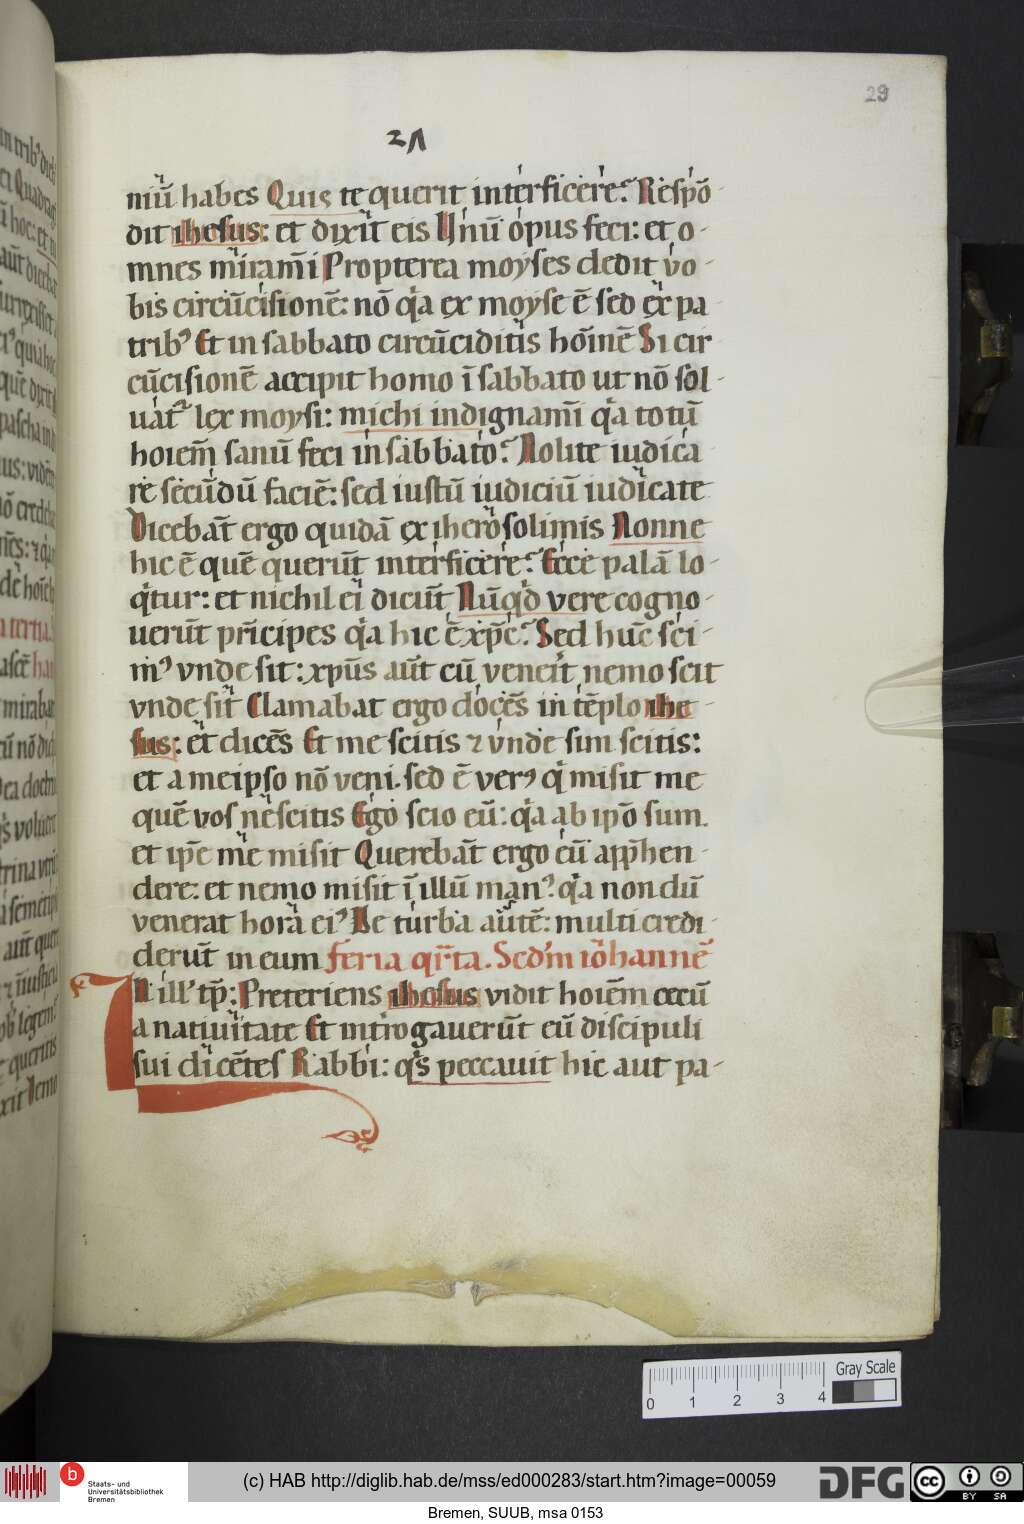 29
2Λ
niū habes Quis te querit interficere? Respō-
dit ihesus: et dixit eis Unū opus feci: et o-
mnes miramī Propterea moyses dedit vo-
bis circūcisionē: nō qͥa ex moyse ē sed ex pa
tribꝰ Et in sabbato circūciditis hōīnē Si cir
cūcisionē accipit homo ī sabbato ut nō sol-
uat᷑ lex moysi: michi indignamī qͥa totū
hoiem̄ sanū feci in sabbato? Nolite iudica
re secūdū faciē: sed iustū iudiciū iudicate
Dicebāt ergo quidā ex iherosolimis Nonne
hic ē quē querūt interficere? Ecce palā lo-
qͥtur: et nichil ei dicūt Nūqͥd vere cogno-
uerūt prīcipes qͥa hic ē xp̄c? Sed hūc sci-
mꝰ vnde sit: xpūs aūt cū venerit nemo scit
vnde sit Clamabat ergo docēs in tēplo ihe
sus: et dicēs Et me scitis ⁊ vnde sim scitis:
et a meipso nō veni. sed ē verꝰ qͥ misit me
quē vos nescitis Ego scio eū: qͥa ab ipō sum.
et ipē me misit Querebāt ergo eū app̄hen-
dere: et nemo misit ī illū manꝰ. qͥa nondū
venerat hora eiꝰ De turba aūtē: multi credi-
derūt in eum feria qrͣta. Sedm̄ iohannē
In ill' tp̄: Preteriens ihesus vidit hoiēm cecū
a natiuitate Et intrōgauerūt eū discipuli
sui dicētes Rabbi: qͥs peccauit hic aut pa-
Gray Scale
0 1 2 3 4
b Staats- und
Universitätsbibliothek
Bremen
(c) HAB http://diglib.hab.de/mss/ed000283/start.htm?image=00059
DFG
cc BY SA
Bremen, SUUB, msa 0153